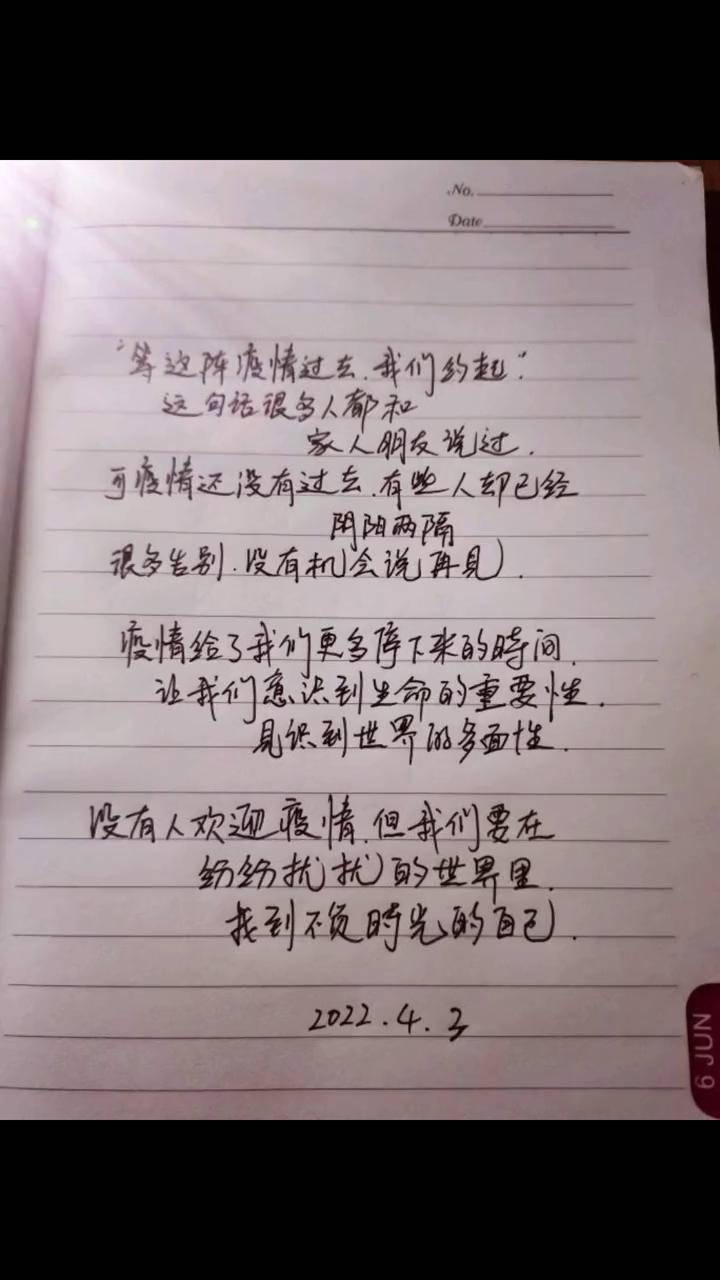 No.
Date
"等这阵疫情过去.我们约起".
这句话很多人都和
家人朋友说过.
可疫情还没有过去.有些人却已经
阴阳两隔
很多告别.没有机会说再见.
疫情给了我们更多停下来的时间.
让我们意识到生命的重要性.
见识到世界的多面性.
没有人欢迎疫情.但我们要在
纷纷扰扰的世界里.
找到不负时光的自己.
2022.4.3
6 JUN